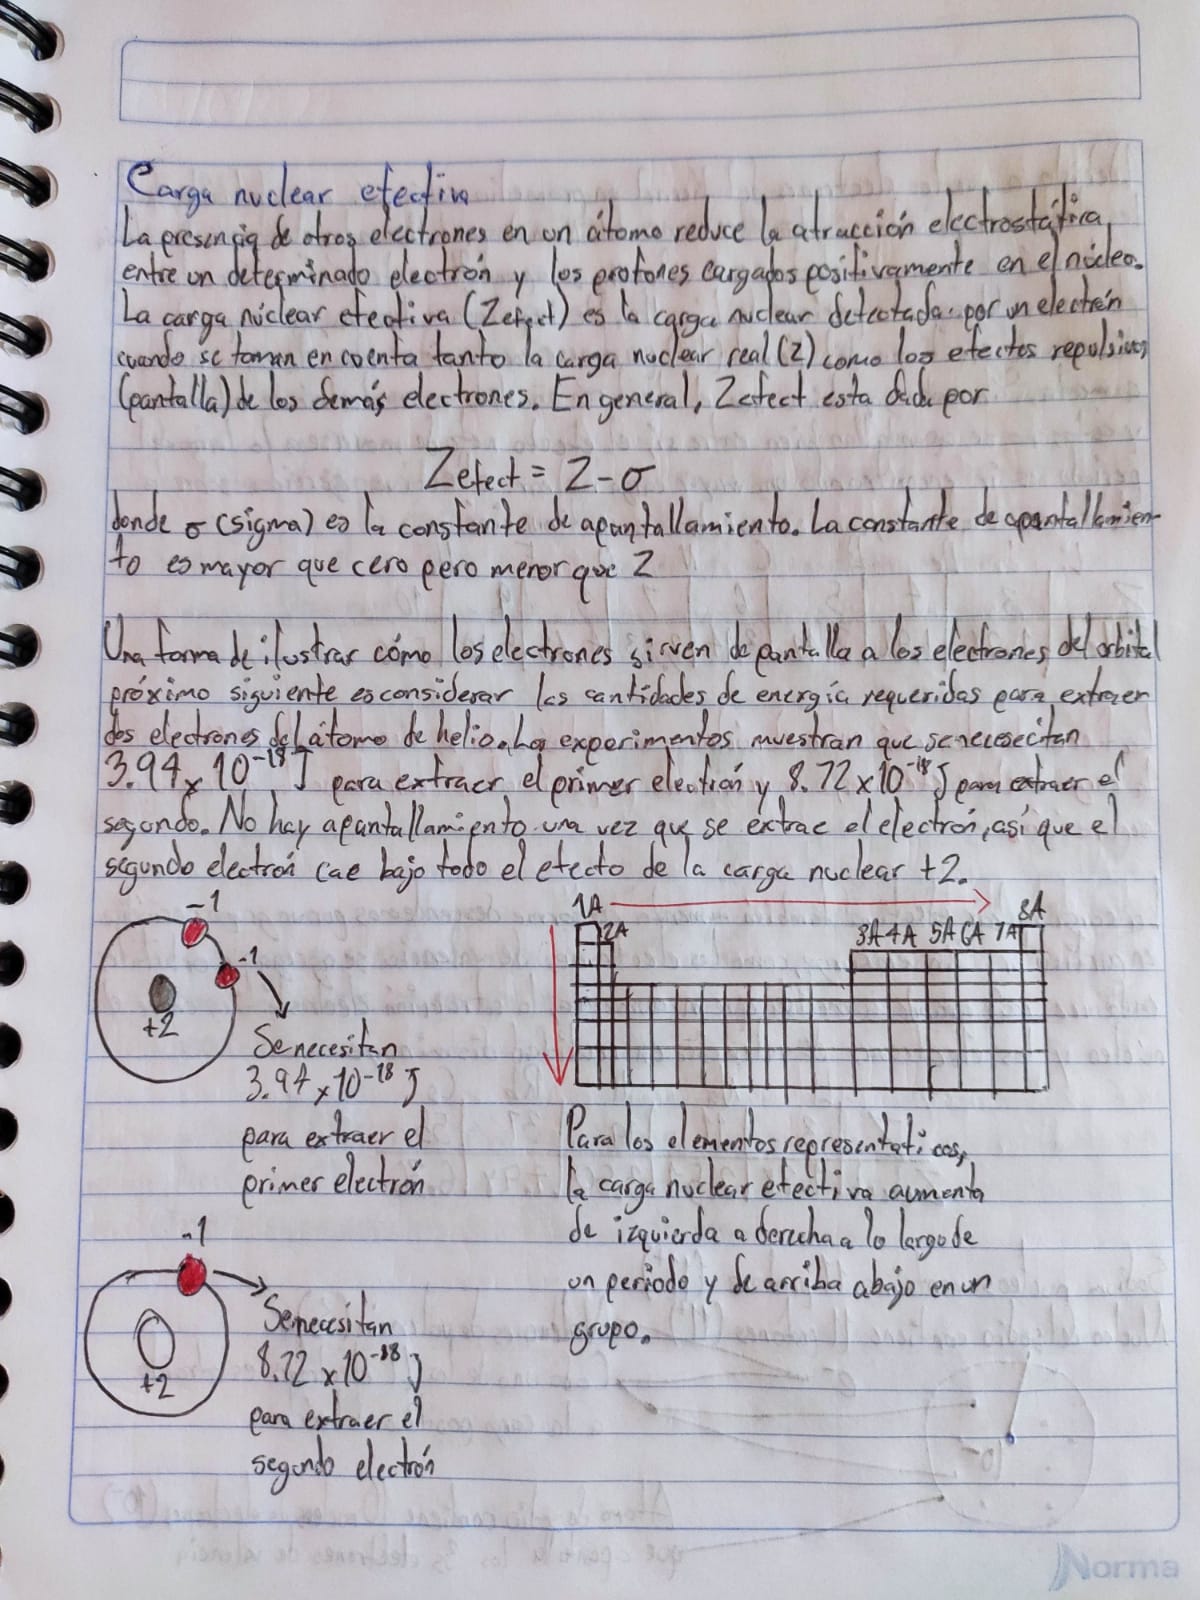 Carga nuclear efectiva
La presencia de otros electrones en un átomo reduce la atracción electrostática
entre un determinado electrón y los protones cargados positivamente en el núcleo.
La carga núclear efectiva (Zefect) es la carga nuclear detectada por un electrón
cuando se toman en cuenta tanto la carga nuclear real (Z) como los efectos repulsivos
(pantalla) de los demás electrones. En general, Zefect esta dada por
Zefect = Z - σ
donde σ (sigma) es la constante de apantallamiento. La constante de apantallamien-
to es mayor que cero pero menor que Z
Una forma de ilustrar cómo los electrones sirven de pantalla a los electrones del orbital
próximo siguiente es considerar las cantidades de energía requeridas para extraer
dos electrones del átomo de helio. Los experimentos muestran que se necesecitan
3.94 x 10⁻¹⁸ J para extraer el primer electrón y 8.72 x 10⁻¹⁸ J para extraer el
segundo. No hay apantallamiento una vez que se extrae el electrón, así que el
segundo electrón cae bajo todo el efecto de la carga nuclear +2.
-1
-1
+2
Se necesitan
3.94 x 10⁻¹⁸ J
para extraer el
primer electrón
-1
+2
Se necesitan
8.72 x 10⁻¹⁸ J
para extraer el
segundo electrón
1A 8A
2A 3A 4A 5A 6A 7A
Para los elementos representativos,
la carga nuclear efectiva aumenta
de izquierda a derecha a lo largo de
un periodo y de arriba abajo en un
grupo.
Norma